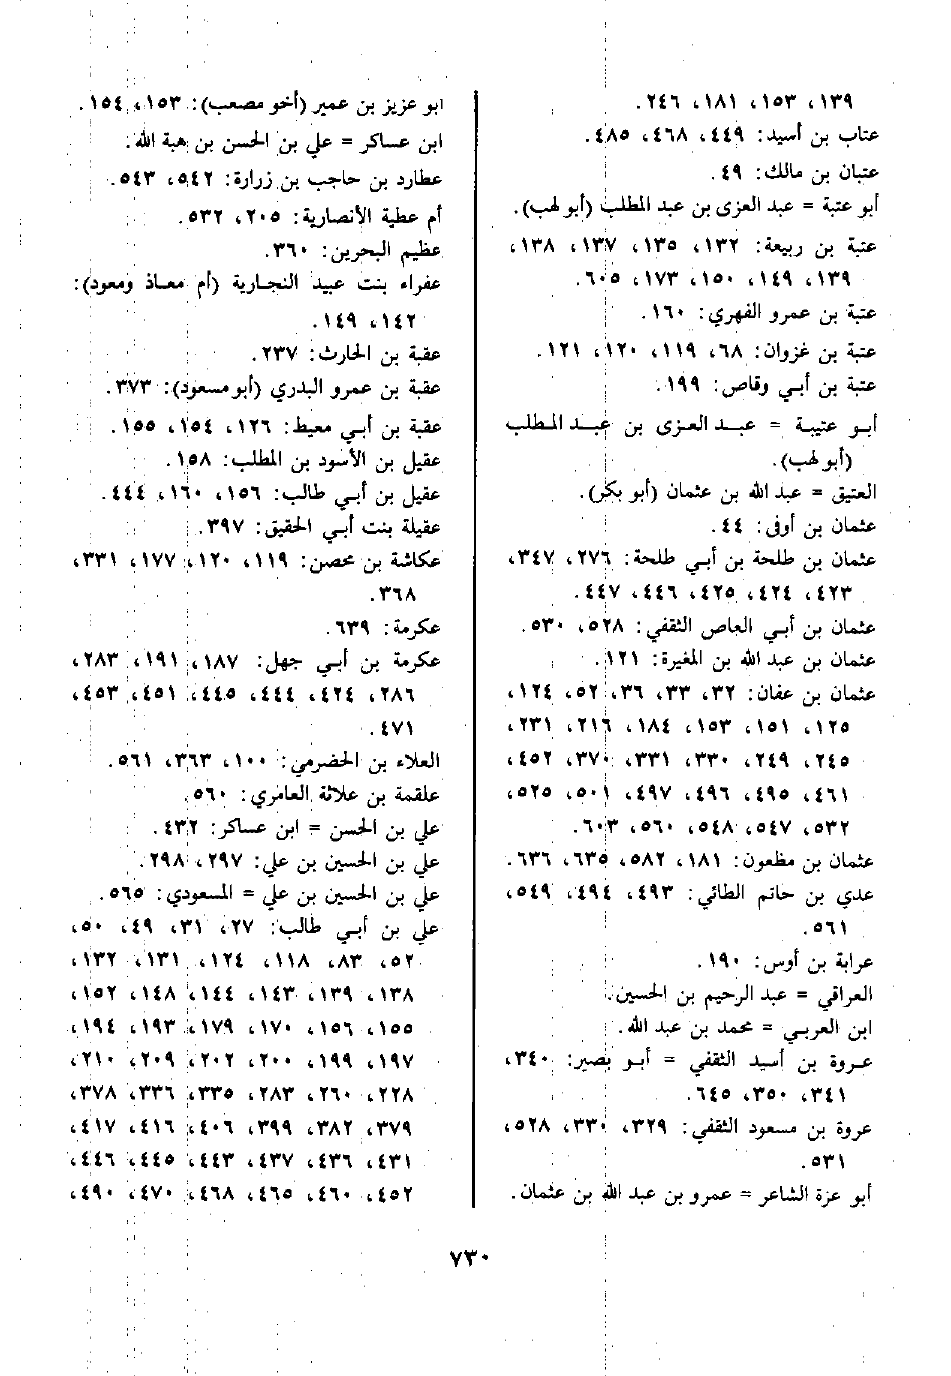 ١٣٩، ١٥٣، ١٨١، ٢٤٦.
عتاب بن أسيد: ٤٤٩، ٤٦٨، ٤٨٥.
عتبان بن مالك: ٤٩.
أبو عتبة = عبد العزى بن عبد المطلب (أبو لهب).
عتبة بن ربيعة: ١٣٢، ١٣٥، ١٣٧، ١٣٨،
١٣٩، ١٤٩، ١٥٠، ١٧٣، ٦٠٥.
عتبة بن عمرو الفهري: ١٦٠.
عتبة بن غزوان: ٦٨، ١١٩، ١٢٠، ١٢١.
عتبة بن أبي وقاص: ١٩٩.
أبو عتيبة = عبد العزى بن عبد المطلب
(أبو لهب).
العتيق = عبد الله بن عثمان (أبو بكر).
عثمان بن أوفى: ٤٤.
عثمان بن طلحة بن أبي طلحة: ٢٧٦، ٣٤٧،
٤٢٣، ٤٢٤، ٤٢٥، ٤٤٦، ٤٤٧.
عثمان بن أبي العاص الثقفي: ٥٢٨، ٥٣٠.
عثمان بن عبد الله بن المغيرة: ١٢١.
عثمان بن عفان: ٣٢، ٣٣، ٣٦، ٥٢، ١٢٤،
١٢٥، ١٥١، ١٥٣، ١٨٤، ٢١٦، ٢٣١،
٢٤٥، ٢٤٩، ٣٣٠، ٣٣١، ٣٧٠، ٤٥٢،
٤٦١، ٤٩٥، ٤٩٦، ٤٩٧، ٥٠١، ٥٢٥،
٥٣٢، ٥٤٧، ٥٤٨، ٥٦٠، ٦٠٣.
عثمان بن مظعون: ١٨١، ٥٨٢، ٦٣٥، ٦٣٦.
عدي بن حاتم الطائي: ٤٩٣، ٤٩٤، ٥٤٩،
٥٦١.
عرابة بن أوس: ١٩٠.
العراقي = عبد الرحيم بن الحسين.
ابن العربي = محمد بن عبد الله.
عروة بن أسيد الثقفي = أبو بصير: ٣٤٠،
٣٤١، ٣٥٠، ٦٤٥.
عروة بن مسعود الثقفي: ٣٢٩، ٣٣٠، ٥٢٨،
٥٣١.
أبو عزة الشاعر = عمرو بن عبد الله بن عثمان.
ابو عزيز بن عمير (أخو مصعب): ١٥٣، ١٥٤.
ابن عساكر = علي بن الحسن بن هبة الله.
عطارد بن حاجب بن زرارة: ٥٤٢، ٥٤٣.
أم عطية الأنصارية: ٢٠٥، ٥٣٢.
عظيم البحرين: ٣٦٠.
عفراء بنت عبيد النجارية (أم معاذ ومعود):
١٤٢، ١٤٩.
عقبة بن الحارث: ٢٣٧.
عقبة بن عمرو البدري (أبو مسعود): ٣٧٣.
عقبة بن أبي معيط: ١٢٦، ١٥٤، ١٥٥.
عقيل بن الأسود بن المطلب: ١٥٨.
عقيل بن أبي طالب: ١٥٦، ١٦٠، ٤٤٤.
عقيلة بنت أبي الحقيق: ٣٩٧.
عكاشة بن محصن: ١١٩، ١٢٠، ١٧٧، ٣٣١،
٣٦٨.
عكرمة: ٦٣٩.
عكرمة بن أبي جهل: ١٨٧، ١٩١، ٢٨٣،
٢٨٦، ٤٢٤، ٤٤٤، ٤٤٥، ٤٥١، ٤٥٣،
٤٧١.
العلاء بن الحضرمي: ١٠٠، ٣٦٣، ٥٦١.
علقمة بن علاثة العامري: ٥٦٠.
علي بن الحسن = ابن عساكر: ٤٣٢.
علي بن الحسين بن علي: ٢٩٧، ٢٩٨.
علي بن الحسين بن علي = المسعودي: ٥٦٥.
علي بن أبي طالب: ٢٧، ٣١، ٤٩، ٥٠،
٥٢، ٨٣، ١١٨، ١٢٤، ١٣١، ١٣٢،
١٣٨، ١٣٩، ١٤٣، ١٤٤، ١٤٨، ١٥٢،
١٥٥، ١٥٦، ١٧٠، ١٧٩، ١٩٣، ١٩٤،
١٩٧، ١٩٩، ٢٠٠، ٢٠٢، ٢٠٩، ٢١٠،
٢٢٨، ٢٦٠، ٢٨٣، ٣٣٥، ٣٣٦، ٣٧٨،
٣٧٩، ٣٨٢، ٣٩٩، ٤٠٦، ٤١٦، ٤١٧،
٤٣١، ٤٣٦، ٤٣٧، ٤٤٣، ٤٤٥، ٤٤٦،
٤٥٢، ٤٦٠، ٤٦٥، ٤٦٨، ٤٧٠، ٤٩٠،
٧٣٠